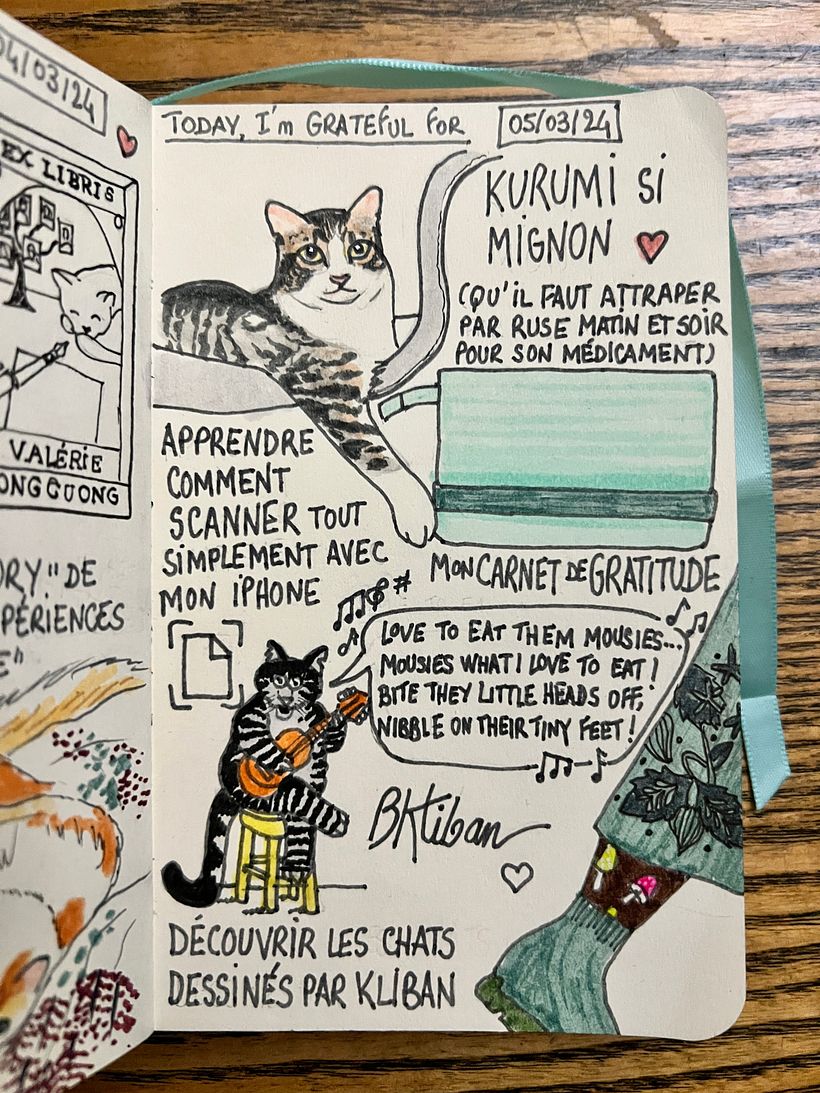 04/03/24
EX LIBRIS
VALÉRIE
TODAY, I'm GRATEFUL FOR
05/03/24
KURUMI SI
MIGNON
(QU'IL FAUT ATTRAPER
PAR RUSE MATIN ET SOIR
POUR SON MÉDICAMENT)
APPRENDRE
COMMENT
SCANNER TOUT
SIMPLEMENT AVEC
MON IPHONE
MON CARNET DE GRATITUDE
LOVE TO EAT THEM MOUSIES...
MOUSIES WHAT I LOVE TO EAT!
BITE THEY LITTLE HEADS OFF,
NIBBLE ON THEIR TINY FEET!
BKliban
DÉCOUVRIR LES CHATS
DESSINÉS PAR KLIBAN